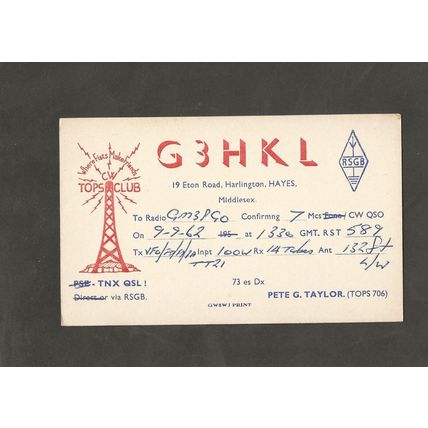 Where Fists Make Friends
CW
TOPS CLUB
G3HKL
RSGB
19 Eton Road, Harlington, HAYES,
Middlesex.
To Radio GM3PGO Confirmng 7 Mcs Fone/ CW QSO
On 9-9-62 195 at 1330 GMT. RST 589
Tx Inpt 100W Rx 14 Tubes Ant 132 ft
TT21 L/W
PSE - TNX QSL! 73 es Dx
Direct or via RSGB. PETE G. TAYLOR. (TOPS 706)
GW8WJ PRINT